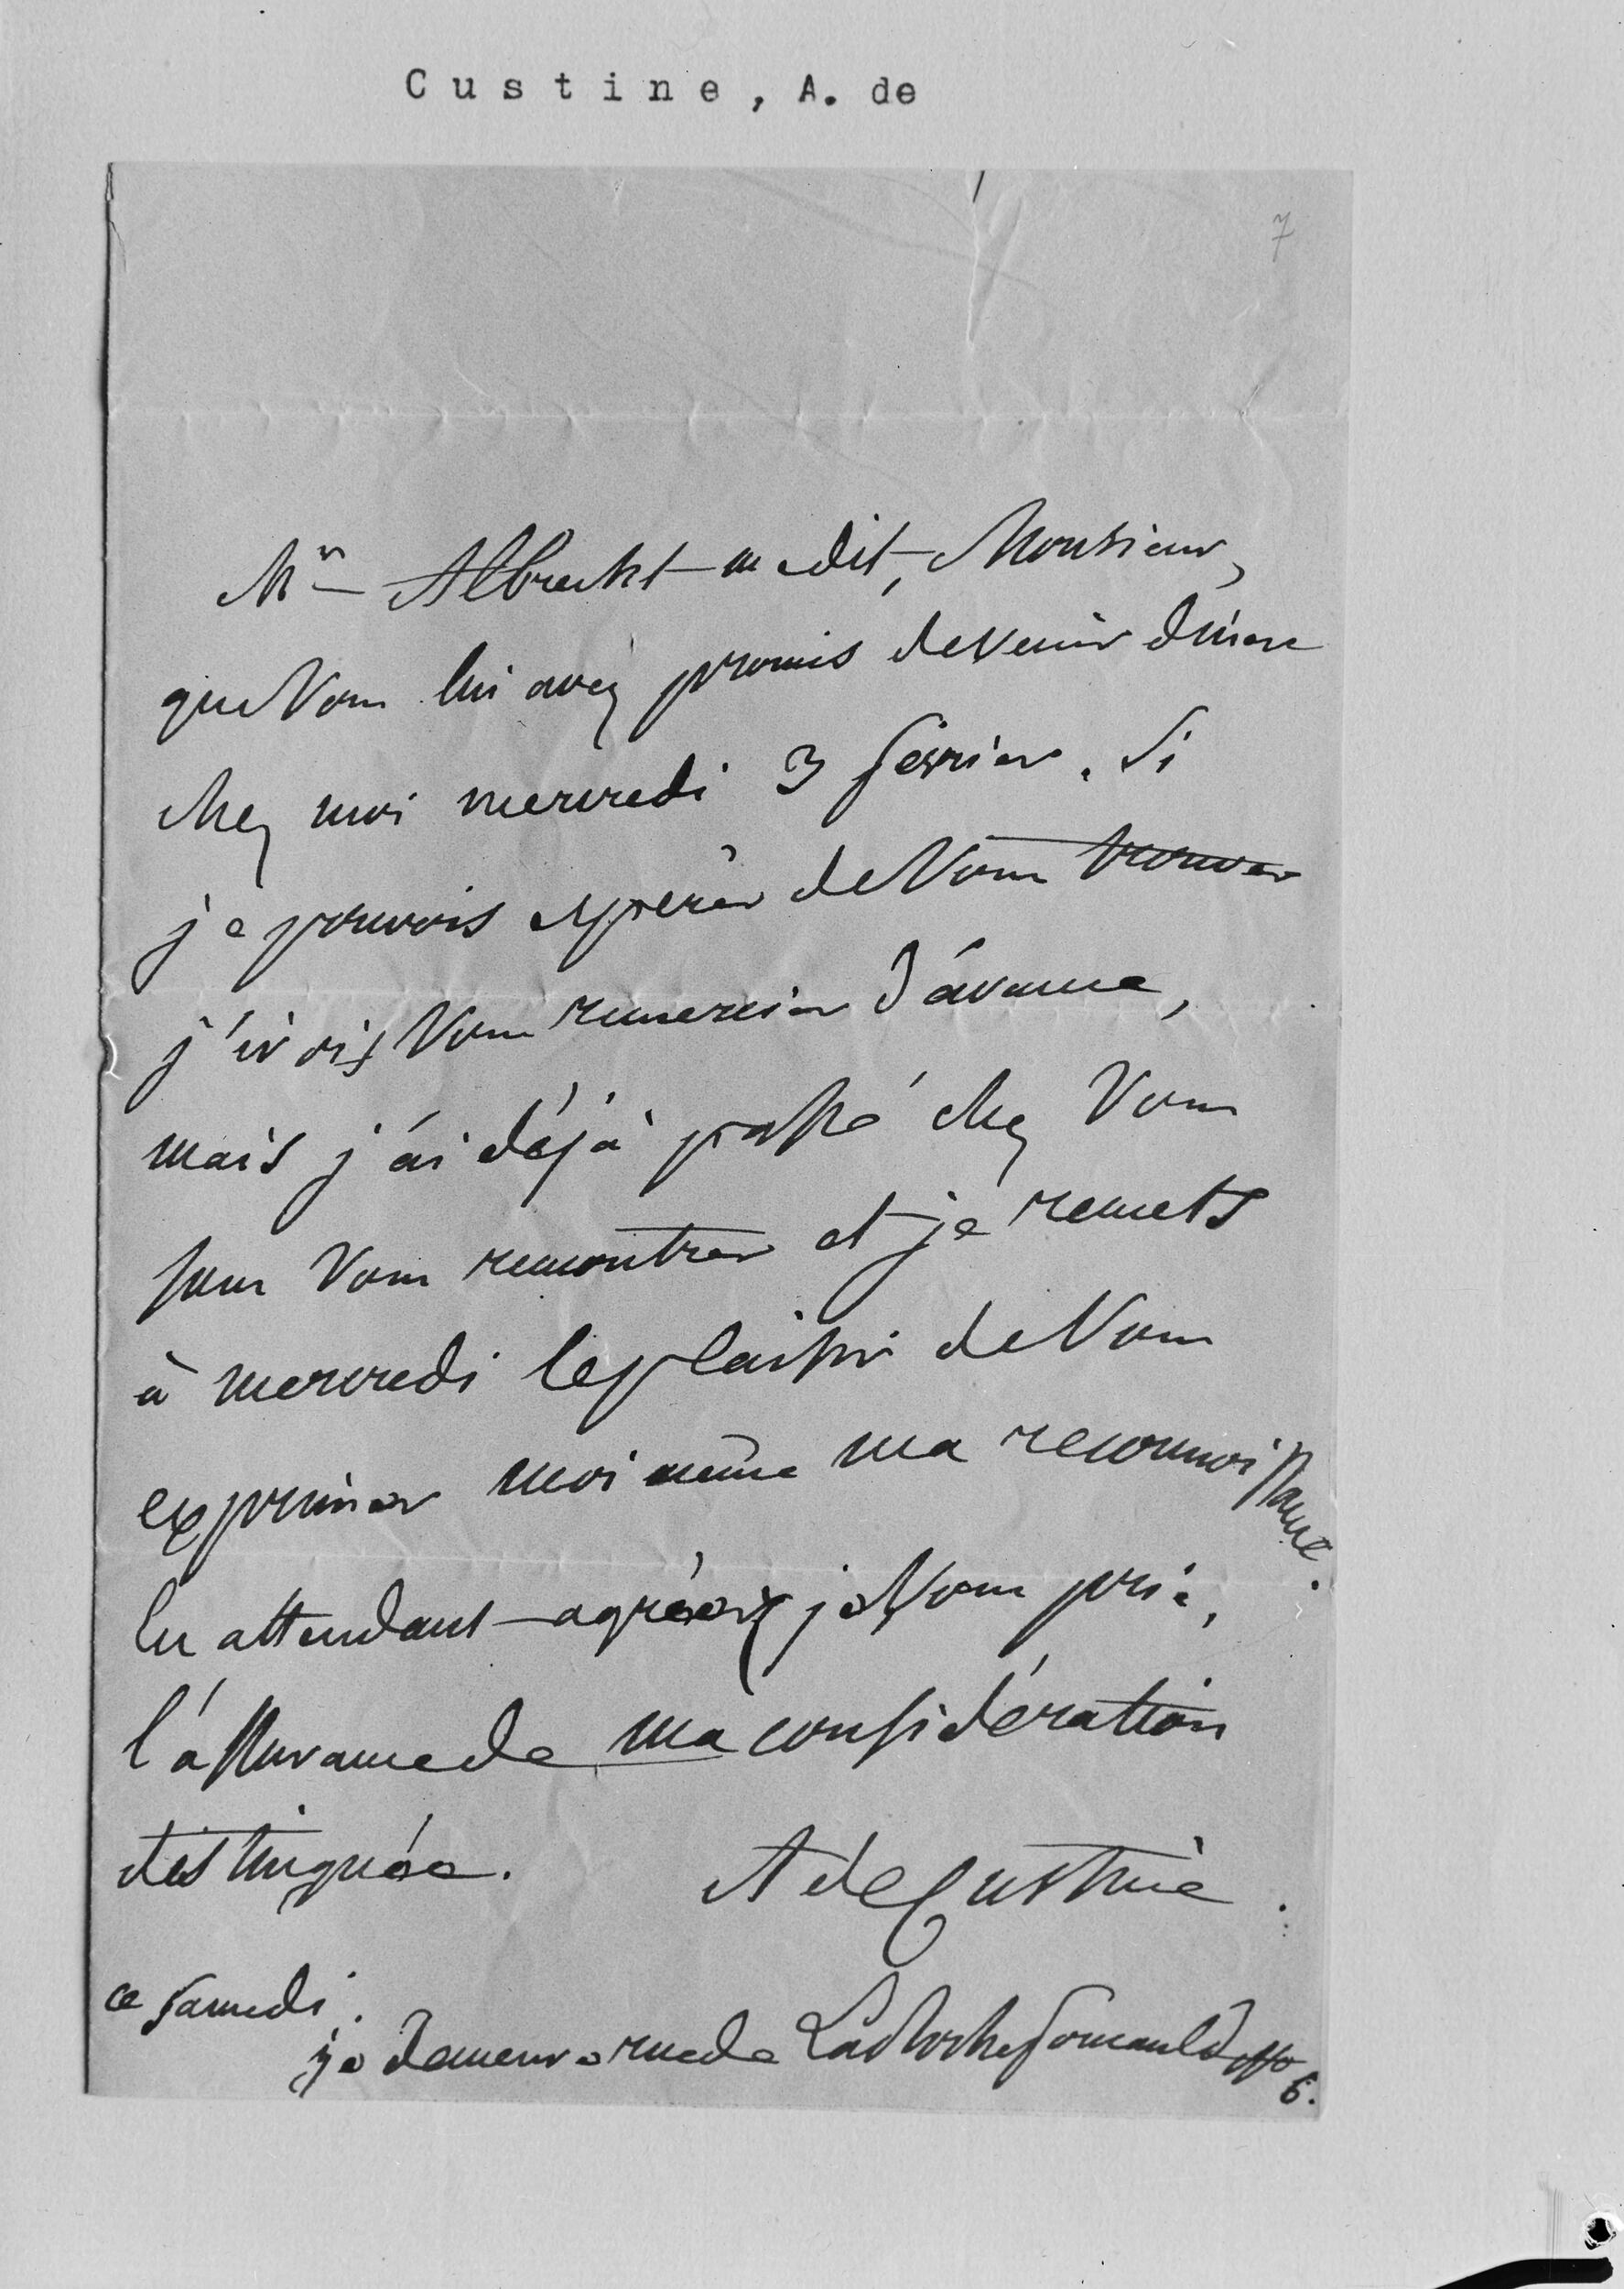 Custine, A. de
7
Mr Albrecht me dit, Monsieur,
que Vous lui avez promis de venir diner
chez moi mercredi 3 fevrier. Si
je pouvois esperer de Vous trouver
j'irois Vous remercier d'avance,
mais j'ai déjà passé chez Vous
sans Vous rencontrer et je remets
à mercredi le plaisir de Vous
exprimer moi même ma reconnoissance.
En attendant agréez je Vous prie,
l'assurance de ma considération
distinguée.
A de Custine.
ce samedi.
je demeure rue de La Rochefoucauld No
6.